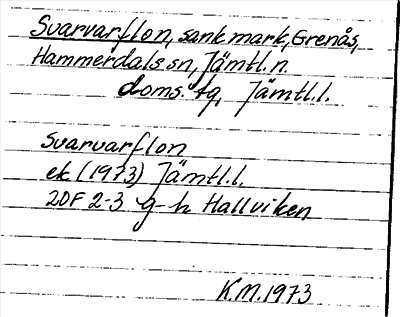 Svarvarflon, sank mark, Grenås,
Hammerdals sn, Jämtl. n.
doms. tg, Jämtl. l.
Svarvarflon
ek (1973) Jämtl. l.
20F 2-3 g-h Hallviken
K.M. 1973